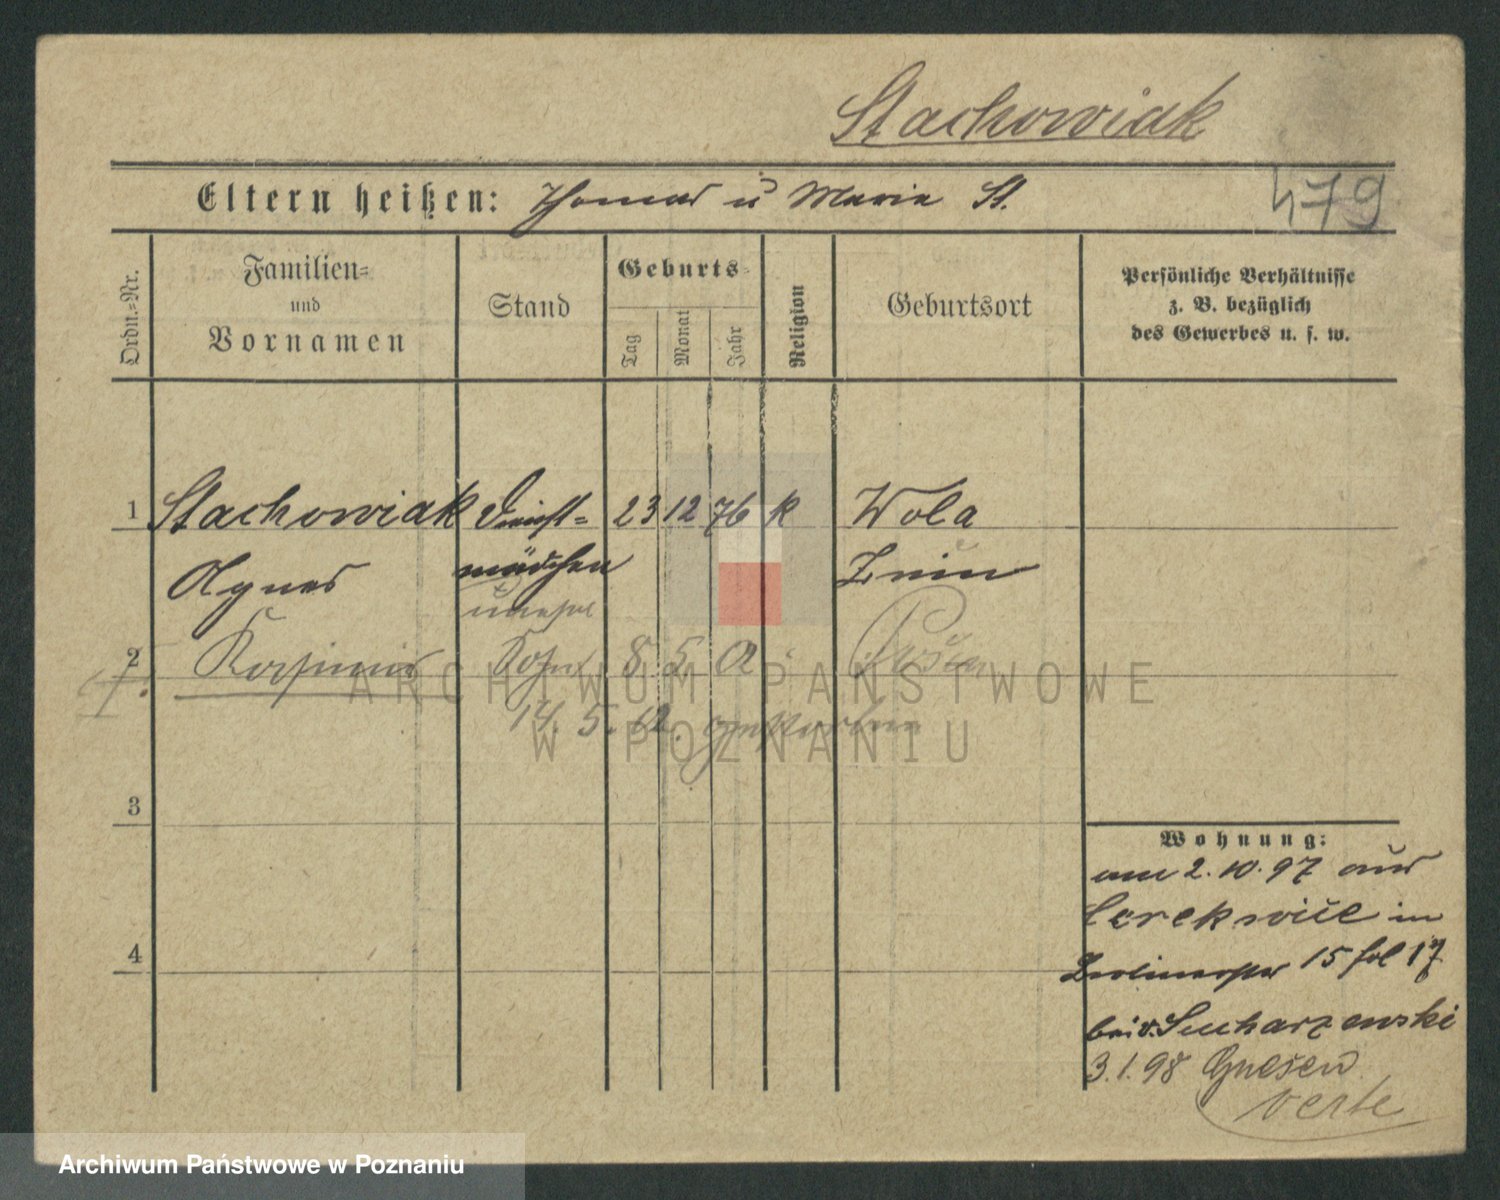 Stachowiak
Eltern heißen: Thomas u Maria St.
479
Ordn.-Nr.
Familien-
und
Vornamen
Stand
Geburts-
Tag
Monat
Jahr
Religion
Geburtsort
Persönliche Verhältnisse
z. B. bezüglich
des Gewerbes u. s. w.
1 Stachowiak Dienst- 23 12 76 k Wola
Agnes mädchen Znin
unehel
2 Kasimir Sohn 8 5 Posen
14. 5. gestorben
3
4
Wohnung:
am 2. 10. 97 aus
Cerekwice in
Berlinerstr 15 fol 17
bei v. Sucharzewski
3. 1. 98 Gnesen
verte
ARCHIWUM PAŃSTWOWE
W POZNANIU
Archiwum Państwowe w Poznaniu